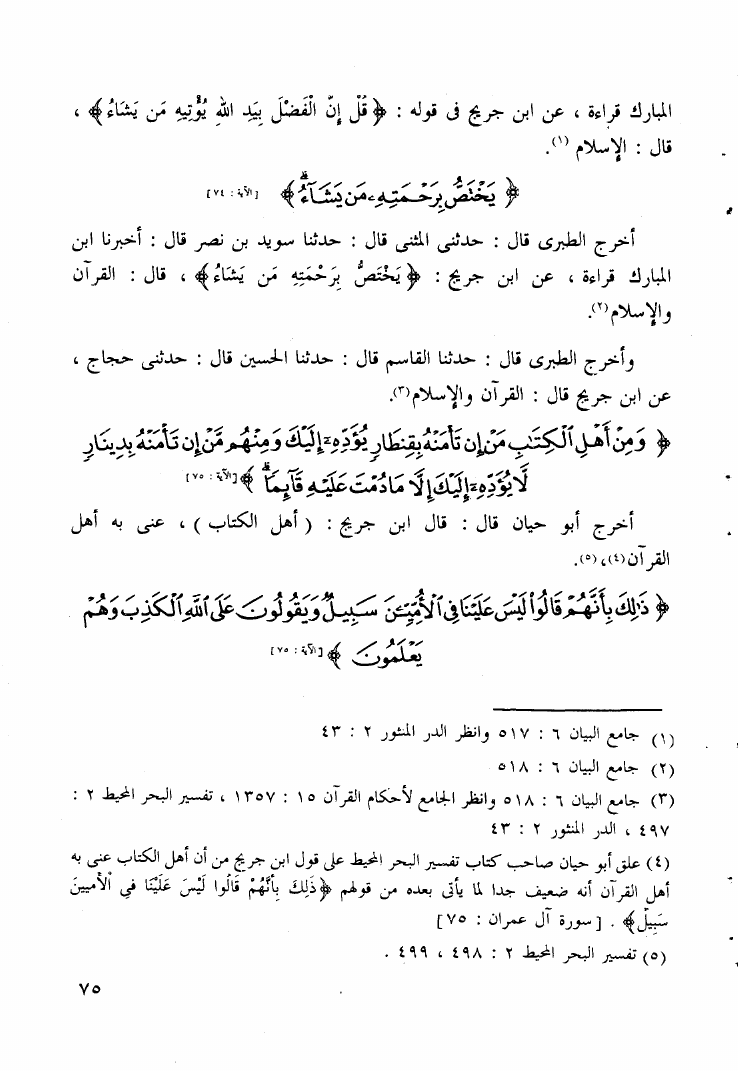 المبارك قراءة ، عن ابن جريج فى قوله : ﴿ قُلْ إِنَّ الْفَضْلَ بِيَدِ اللهِ يُؤْتِيهِ مَن يَشَاءُ ﴾ ،
قال : الإسلام (١).
﴿ يَخْتَصُّ بِرَحْمَتِهِۦ مَن يَشَآءُ ۗ ﴾ [الآية : ٧٤]
أخرج الطبرى قال : حدثنى المثنى قال : حدثنا سويد بن نصر قال : أخبرنا ابن
المبارك قراءة ، عن ابن جريج : ﴿ يَخْتَصُّ بِرَحْمَتِهِ مَن يَشَاءُ ﴾ ، قال : القرآن
والإسلام(٢).
وأخرج الطبرى قال : حدثنا القاسم قال : حدثنا الحسين قال : حدثنى حجاج ،
عن ابن جريج قال : القرآن والإسلام(٣).
﴿ وَمِنْ أَهْلِ ٱلْكِتَٰبِ مَنْ إِن تَأْمَنْهُ بِقِنطَارٍ يُؤَدِّهِۦٓ إِلَيْكَ وَمِنْهُم مَّنْ إِن تَأْمَنْهُ بِدِينَارٍ
لَّا يُؤَدِّهِۦٓ إِلَيْكَ إِلَّا مَا دُمْتَ عَلَيْهِ قَآئِمًا ۗ ﴾ [الآية : ٧٥]
أخرج أبو حيان قال : قال ابن جريج : ( أهل الكتاب ) ، عنى به أهل
القرآن(٤)،(٥).
﴿ ذَٰلِكَ بِأَنَّهُمْ قَالُوا۟ لَيْسَ عَلَيْنَا فِى ٱلْأُمِّيِّـۧنَ سَبِيلٌ وَيَقُولُونَ عَلَى ٱللَّهِ ٱلْكَذِبَ وَهُمْ
يَعْلَمُونَ ﴾ [الآية : ٧٥]
(١) جامع البيان ٦ : ٥١٧ وانظر الدر المنثور ٢ : ٤٣
(٢) جامع البيان ٦ : ٥١٨
(٣) جامع البيان ٦ : ٥١٨ وانظر الجامع لأحكام القرآن ١٥ : ١٣٥٧ ، تفسير البحر المحيط ٢ :
٤٩٧ ، الدر المنثور ٢ : ٤٣
(٤) علق أبو حيان صاحب كتاب تفسير البحر المحيط على قول ابن جريج من أن أهل الكتاب عنى به
أهل القرآن أنه ضعيف جدا لما يأتى بعده من قولهم ﴿ ذَلِكَ بِأَنَّهُمْ قَالُوا لَيْسَ عَلَيْنَا فِي الأميينَ
سَبِيلٌ ﴾ . [ سورة آل عمران : ٧٥ ]
(٥) تفسير البحر المحيط ٢ : ٤٩٨ ، ٤٩٩ .
٧٥